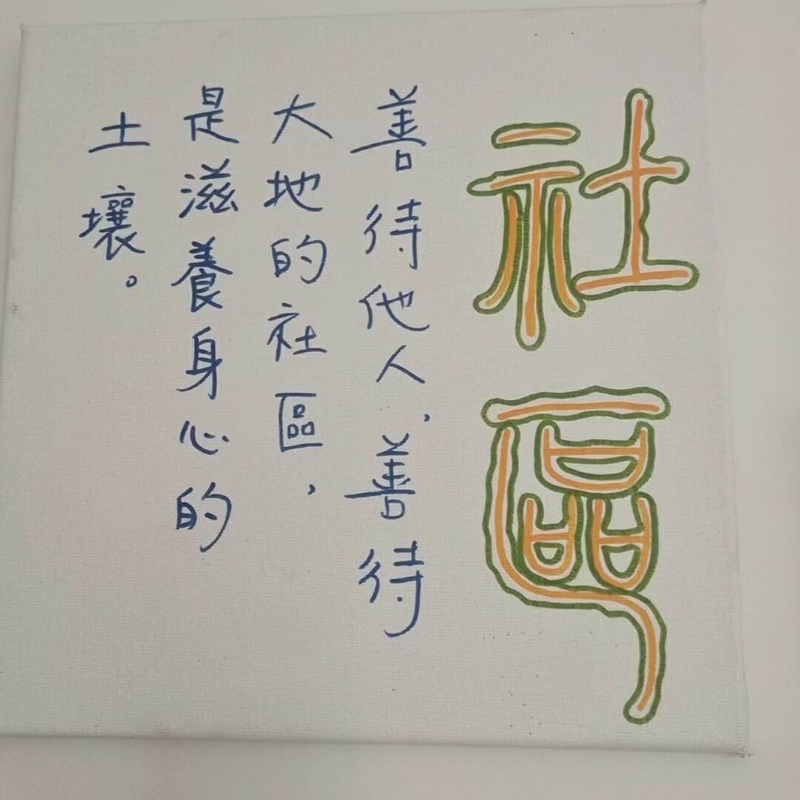 社區
善待他人,善待
大地的社區,
是滋養身心的
土壤。